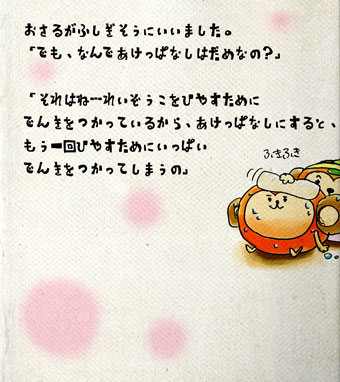 おさるがふしぎそうにいいました。
「でも、なんであけっぱなしはだめなの?」
「それはね…れいぞうこをひやすために
でんきをつかっているから、あけっぱなしにすると、
もう一回ひやすためにいっぱい
でんきをつかってしまうの」
ふきふき